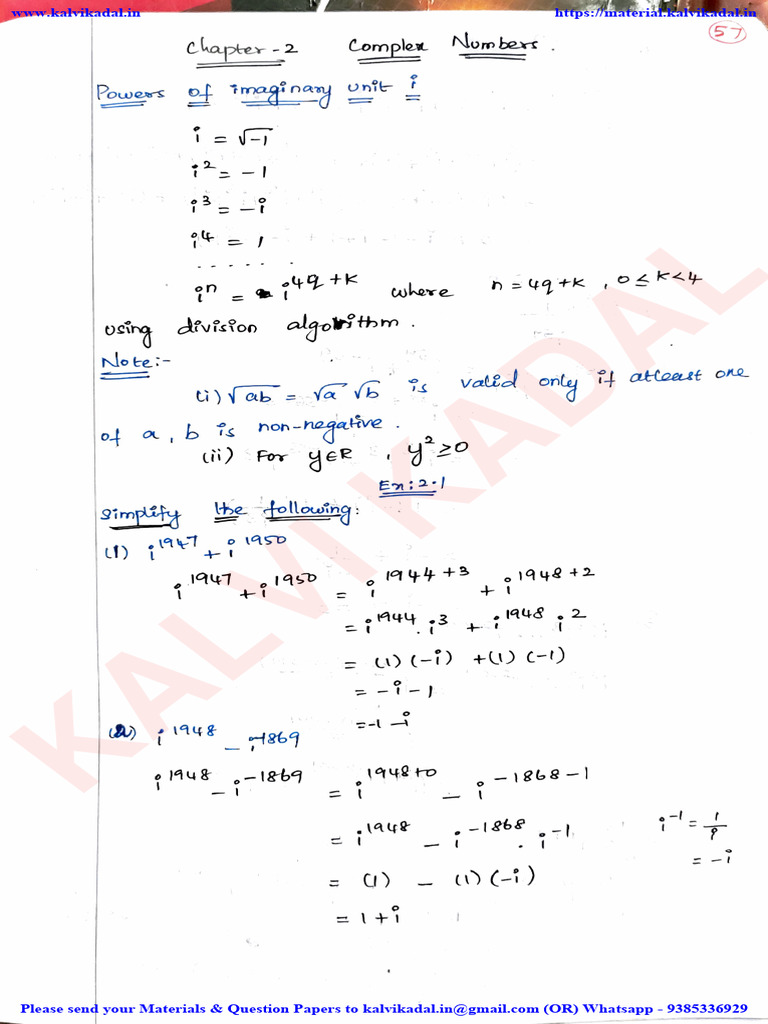 www.kalvikadal.in https://material.kalvikadal.in
57
Chapter-2 Complex Numbers.
Powers of imaginary unit i
i = √-1
i² = -1
i³ = -i
i⁴ = 1
......
iⁿ = i^(4q+k) where n = 4q+k , 0 ≤ k < 4
using division algorithm.
Note:-
(i) √ab = √a √b is valid only if atleast one
of a, b is non-negative.
(ii) For y∈R , y² ≥ 0
Ex: 2.1
Simplify the following:
(1) i^1947 + i^1950
i^1947 + i^1950 = i^(1944+3) + i^(1948+2)
= i^1944 . i³ + i^1948 i²
= (1) (-i) + (1) (-1)
= -i - 1
= -1 - i
(2) i^1948 - i^-1869
i^1948 - i^-1869 = i^(1948+0) - i^(-1868-1)
= i^1948 - i^-1868 . i^-1 i^-1 = 1/i
= -i
= (1) - (1) (-i)
= 1 + i
KALVI KADAL
Please send your Materials & Question Papers to kalvikadal.in@gmail.com (OR) Whatsapp - 9385336929